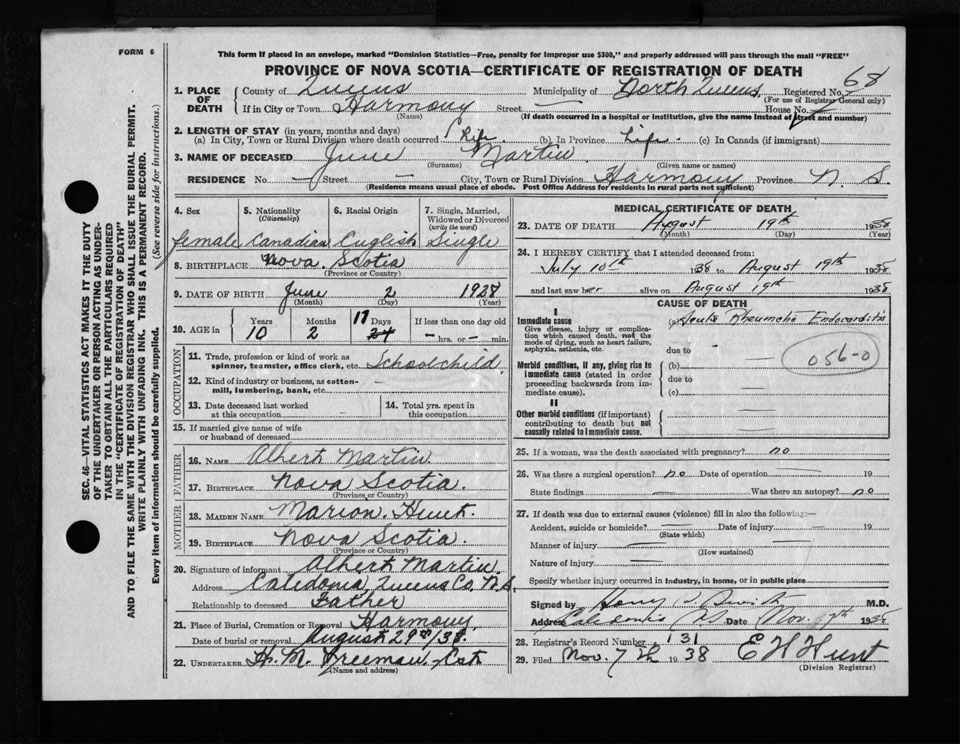 FORM 6
This form if placed in an envelope, marked "Dominion Statistics—Free, penalty for improper use $300," and properly addressed will pass through the mail "FREE"
PROVINCE OF NOVA SCOTIA—CERTIFICATE OF REGISTRATION OF DEATH
68
1. PLACE OF DEATH
County of Queens Municipality of North Queens Registered No.
(For use of Registrar General only)
If in City or Town Harmony Street — House No.
(Name) (If death occurred in a hospital or institution, give the name instead of street and number)
2. LENGTH OF STAY (in years, months and days)
(a) In City, Town or Rural Division where death occurred Life (b) In Province Life (c) In Canada (if immigrant)
3. NAME OF DECEASED June Martin
(Surname) (Given name or names)
RESIDENCE No. — Street — City, Town or Rural Division Harmony Province N. S.
(Residence means usual place of abode. Post Office Address for residents in rural parts not sufficient)
4. Sex 5. Nationality (Citizenship) 6. Racial Origin 7. Single, Married, Widowed or Divorced (write the word)
female Canadian English Single
8. BIRTHPLACE Nova Scotia
(Province or Country)
9. DATE OF BIRTH June 2 1928
(Month) (Day) (Year)
10. AGE in Years Months Days If less than one day old
10 2 17 24 — hrs. or — min.
OCCUPATION
11. Trade, profession or kind of work as spinner, teamster, office clerk, etc. Schoolchild
12. Kind of industry or business, as cotton-mill, lumbering, bank, etc. —
13. Date deceased last worked at this occupation
14. Total yrs. spent in this occupation
15. If married give name of wife or husband of deceased
FATHER
16. NAME Albert Martin
17. BIRTHPLACE Nova Scotia
(Province or Country)
MOTHER
18. MAIDEN NAME Marion Hunt
19. BIRTHPLACE Nova Scotia
(Province or Country)
20. Signature of informant Albert Martin
Address Caledonia, Queens Co. N.S.
Relationship to deceased Father
21. Place of Burial, Cremation or Removal Harmony
Date of burial or removal August
22. UNDERTAKER H. M. Freeman, Est
(Name and address)
MEDICAL CERTIFICATE OF DEATH
23. DATE OF DEATH August 19th 1938
(Month) (Day) (Year)
24. I HEREBY CERTIFY that I attended deceased from:
July 10th 1938 to August 19th 1938
and last saw her alive on August 19th 1938
CAUSE OF DEATH
I
Immediate cause (a) Acute Rheumatic Endocarditis
Give disease, injury or complication which caused death, not the mode of dying, such as heart failure, asphyxia, asthenia, etc.
due to —
056-0
Morbid conditions, if any, giving rise to immediate cause (stated in order proceeding backwards from immediate cause).
(b)
due to
(c)
II
Other morbid conditions (if important) contributing to death but not causally related to immediate cause.
25. If a woman, was the death associated with pregnancy? no
26. Was there a surgical operation? no Date of operation — 19
State findings — Was there an autopsy? no
27. If death was due to external causes (violence) fill in also the following:—
Accident, suicide or homicide? — Date of injury — 19
(State which)
Manner of injury —
(How sustained)
Nature of injury —
Specify whether injury occurred in industry, in home, or in public place
Signed by Harry M.D.
Address Caledonia N.S. Date Nov. 1938
28. Registrar's Record Number 131
29. Filed Nov. 7th 1938 E H Hunt
(Division Registrar)
SEC. 46—VITAL STATISTICS ACT MAKES IT THE DUTY
OF THE UNDERTAKER OR PERSON ACTING AS UNDER-
TAKER TO OBTAIN ALL THE PARTICULARS REQUIRED
IN THE "CERTIFICATE OF REGISTRATION OF DEATH"
AND TO FILE THE SAME WITH THE DIVISION REGISTRAR WHO SHALL ISSUE THE BURIAL PERMIT.
WRITE PLAINLY WITH UNFADING INK. THIS IS A PERMANENT RECORD.
Every item of information should be carefully supplied. (See reverse side for instructions.)